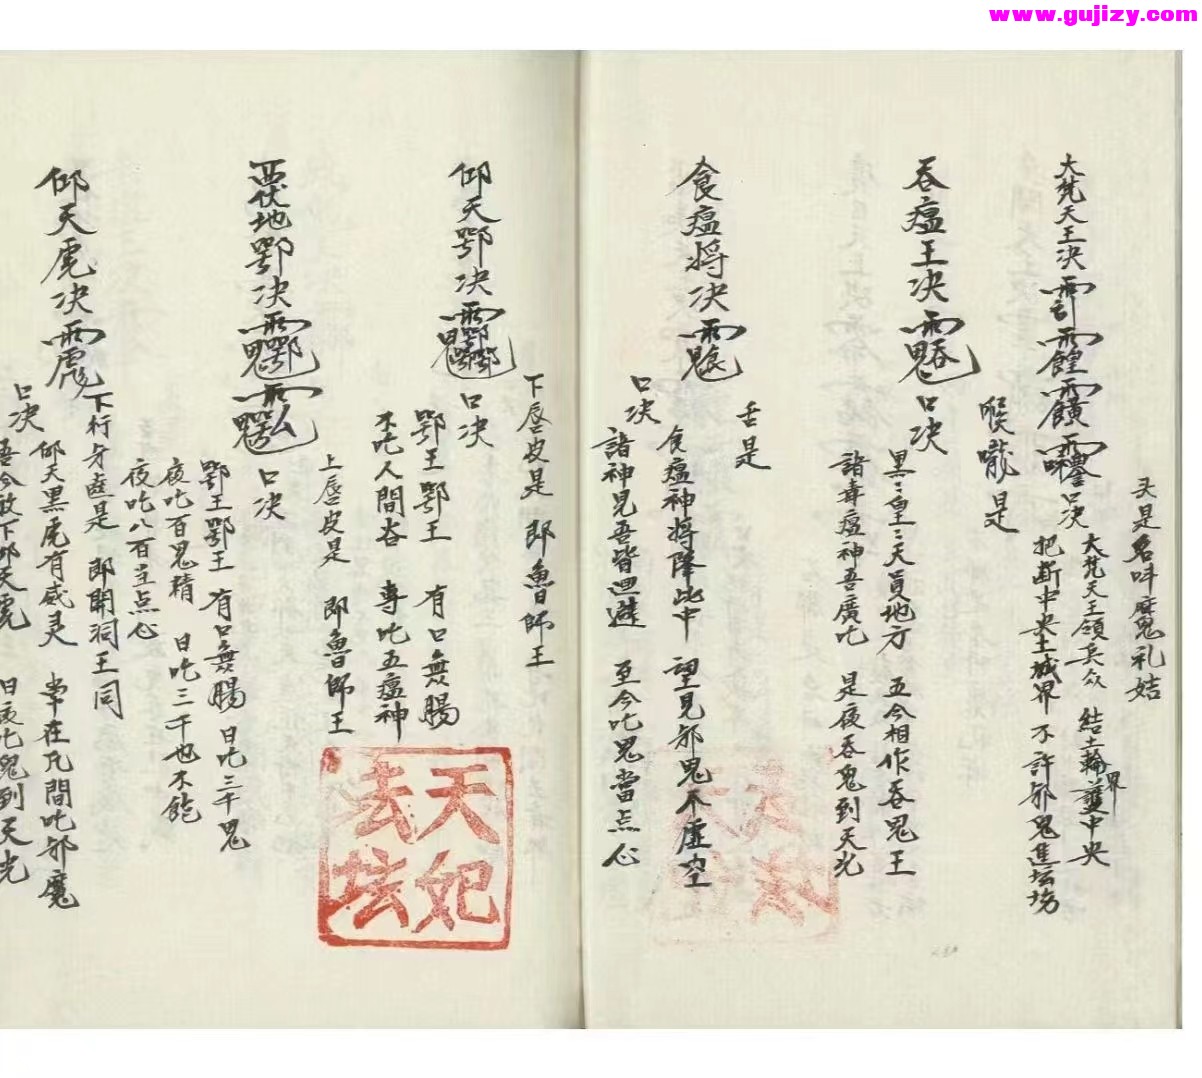 www.gujizy.com
头是名叫魔礼姑
大梵天王决
口决
大梵天王領兵众 結土輪界護中央
把断中央土城界 不許邪鬼進坛場
喉嚨是
吞瘟王决
口决
黑〻皇〻天員地方 五今相作吞鬼王
諸毒瘟神吾廣吃 是夜吞鬼到天光
舌是
食瘟将决
口决
食瘟神将降此中 望見邪鬼不虛空
諸神見吾皆迴避 至今吃鬼當点心
下唇皮是 即魯師王
仰天鄂决
口决
鄂王鄂王 有口無腸
不吃人間谷 專吃五瘟神
上唇皮是 即魯師王
伏地鄂决
口决
鄂王鄂王 有口無腸 日吃三千鬼
夜吃百鬼精 日吃三千也不飽
夜吃八百主点心
下行牙是 即開洞王同
仰天虎决
口决
仰天黑虎有威灵 常在凡間吃邪魔
吾今放下仰天虎 日夜吃鬼到天光
天妃法坛